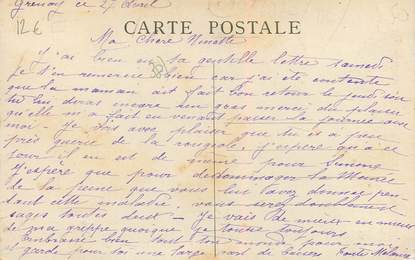 Grenay ce 27 Avril
12 €
CARTE POSTALE
Ma Chère Ninette
J'ai bien eu ta gentille lettre samedi
je t'en remercie bien car j'ai été contente
que la maman ait fait bon retour le jeudi soir
tu lui diras encore un gros merci du plaisir
qu'elle m'a fait en venant passer la journée avec
moi - Je vois avec plaisir que tu es à peu
près guérie de la rougeole, j'espère qu'à ce
jour il en est de même pour Simone
J'espère que pour dédommager la Mémée
de la peine que vous lui avez donnée pen-
dant cette maladie, vous serez doublement
sages toutes deux - Je vais de mieux en mieux
de ma grippe quoique je tousse toujours
Embrasse bien tout ton monde pour moi
et garde pour toi une large part de baisers Tante